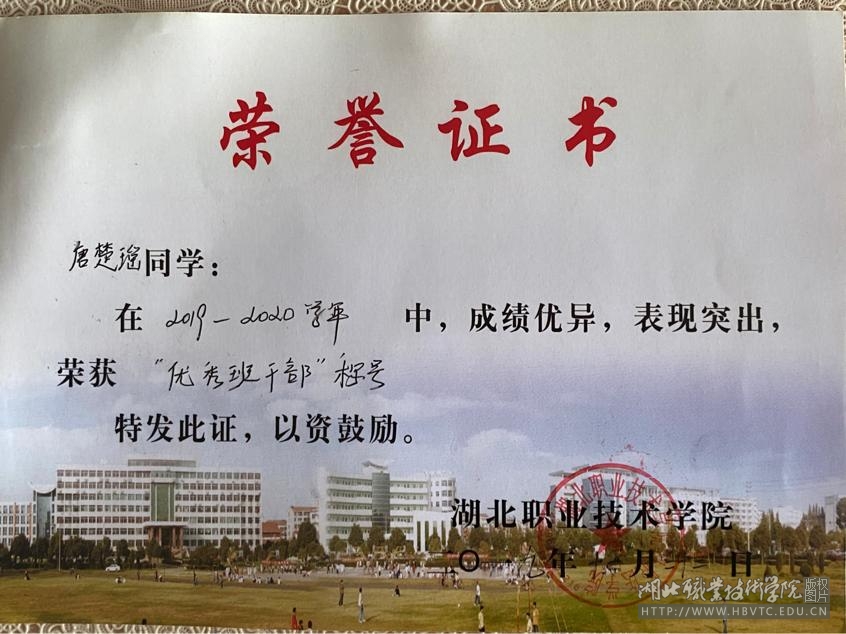 荣誉证书
唐楚瑶同学：
在 2019－2020学年 中，成绩优异，表现突出，
荣获 “优秀班干部”称号
特发此证，以资鼓励。
湖北职业技术学院
年 月 日
湖北職業技術学院 版权图片
HTTP://WWW.HBVTC.EDU.CN